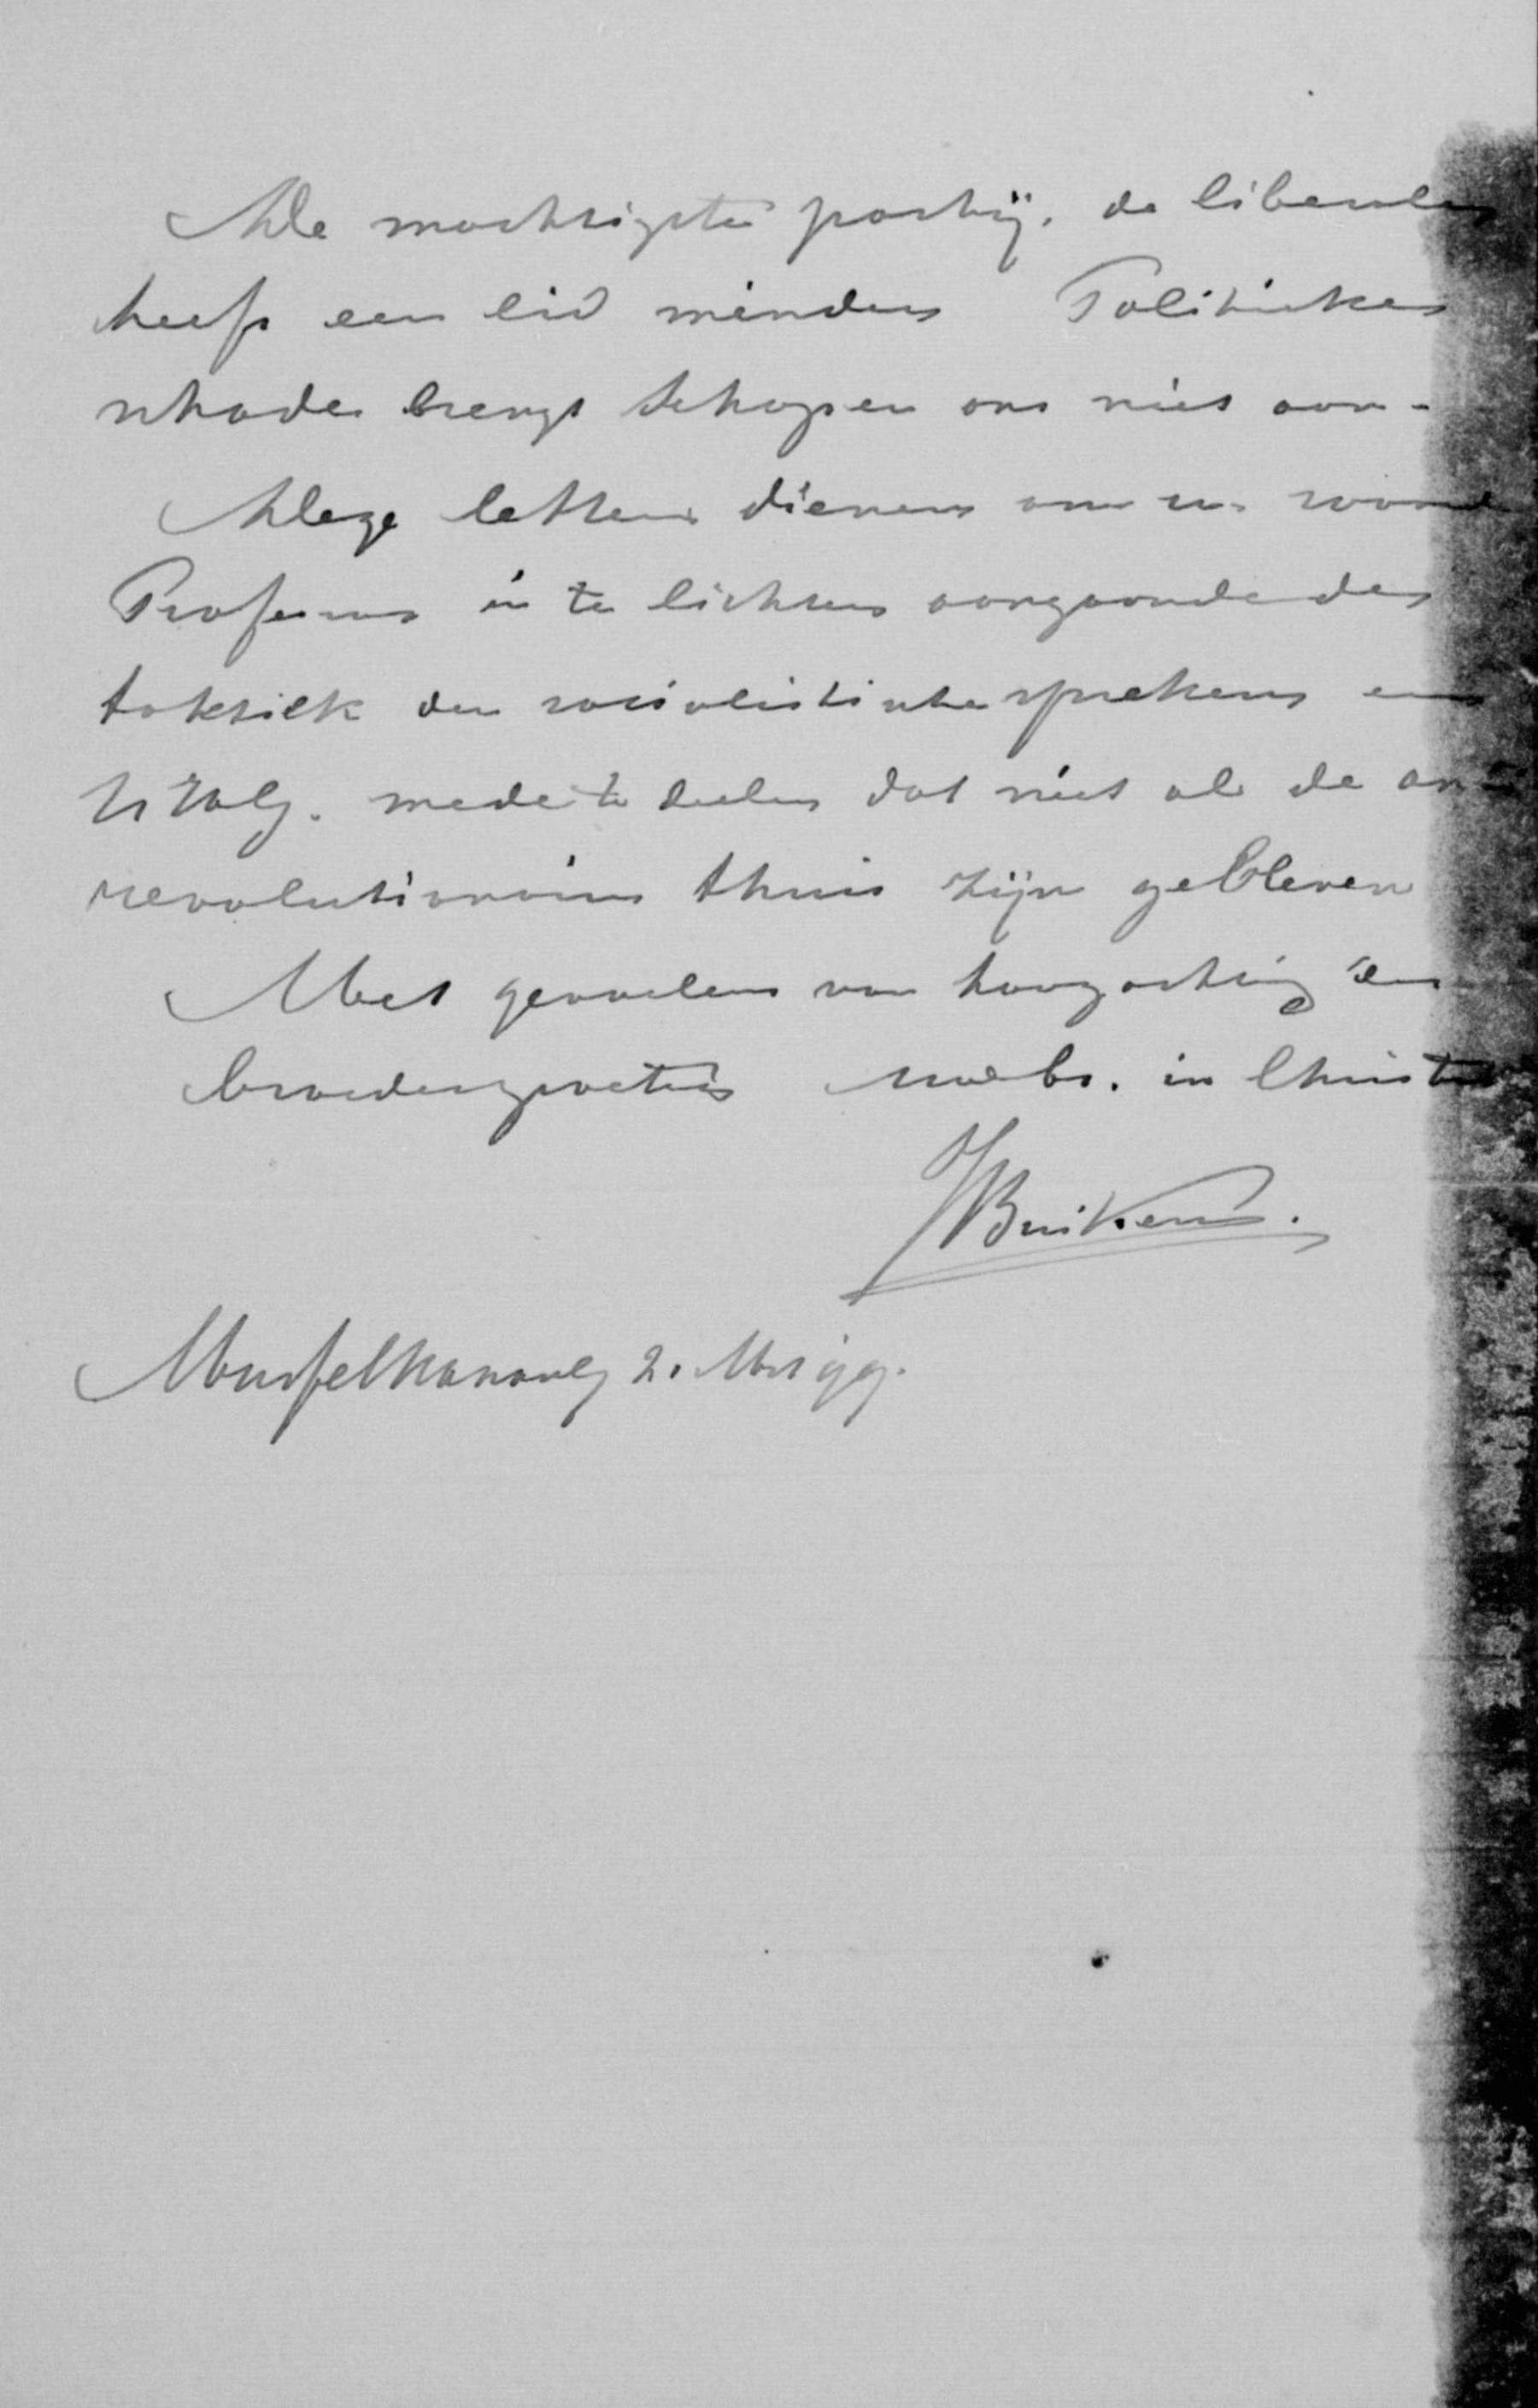 De machtigste partij, de liberalen
heeft een lid minder Politieke
schade brengt Schaper ons niet aan.
Deze letteren dienen om u. waarde
Professor in te lichten aangaande de
taktiek der socialistische sprekers en
UWelg. mede te deelen dat niet al de an
revolutionairen thuis zijn gebleven
Met gevoelens van hoogachting en
broedergroeten uw br. in Christus
J Buikema.
Musselkanaal 2. Mei 99.